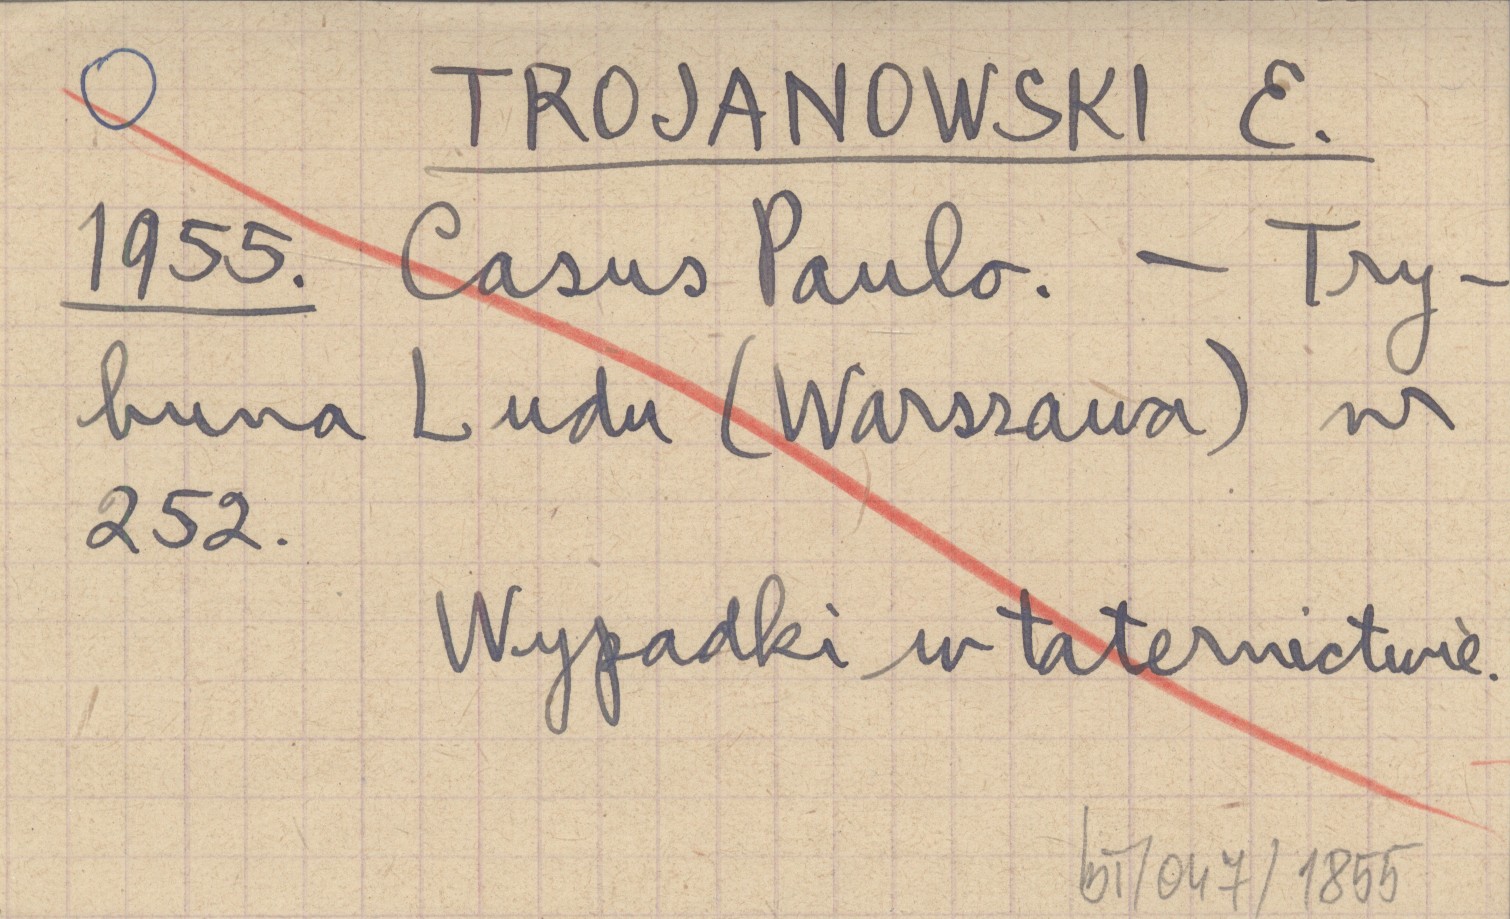 TROJANOWSKI E.
1955. Casus Paulo. - Try-
buna Ludu (Warszawa) nr
252.
Wypadki w taternictwie.
bT/047/1855